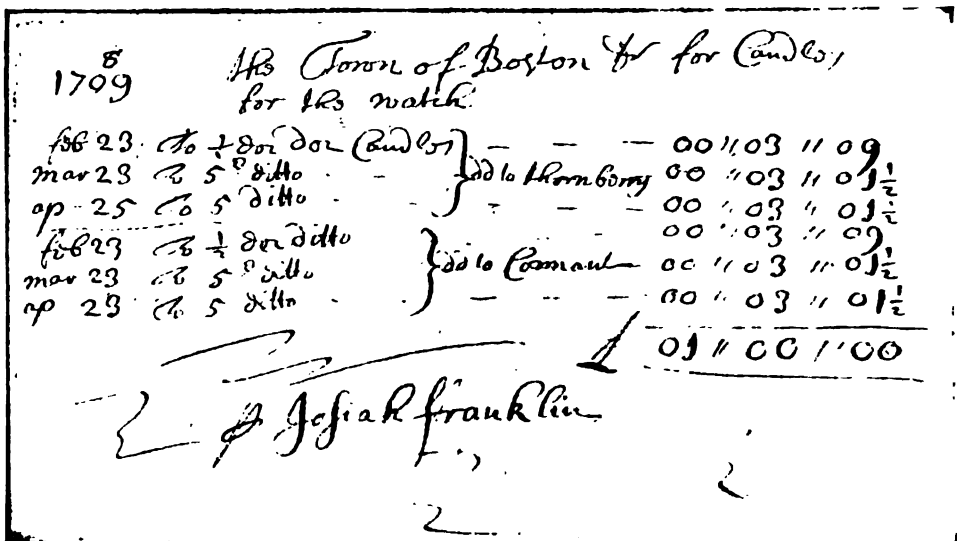 8
1709 the Town of Boston Dr for Candles
for the watch
feb 23 To ½ doz Candles — — — 00 " 03 " 09
mar 23 To 5 ditto - dd to thornberry 00 " 03 " 01½
ap 25 To 5 ditto - - — — 00 " 03 " 01½
feb 23 To ½ doz ditto 00 " 03 " 09
mar 23 To 5 ditto dd to 00 " 03 " 01½
ap 23 To 5 ditto - - — — 00 " 03 " 01½
01 " 00 " 00
Josiah franklin